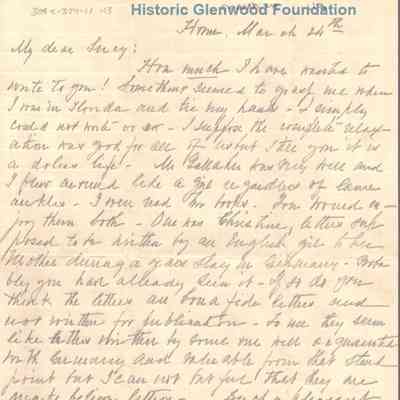 Historic Glenwood Foundation
Home, March 24th
My dear Lucy:
How much I have wanted to
write to you! Something seemed to grasp me when
I was in Florida and tie my hands - I simply
could not write or - I suppose the complete relax-
ation was good for all of us but I tell you it is
a dolces life - Mr Gallaher was very well and
I flew around like a regardless of lame
ankles - I even read two books. You would en-
joy them both - One was Christine, letters sup-
posed to be written by an English girl to her
Mother during a years stay in Germany - Proba-
bly you had already seen it - If so do you
think the letters are bona fide letters and
not written for publication - to me they seem
like letters written by some one well acquainted
with Germany and valuable from that stand
point but I can not but feel that they are
letters -